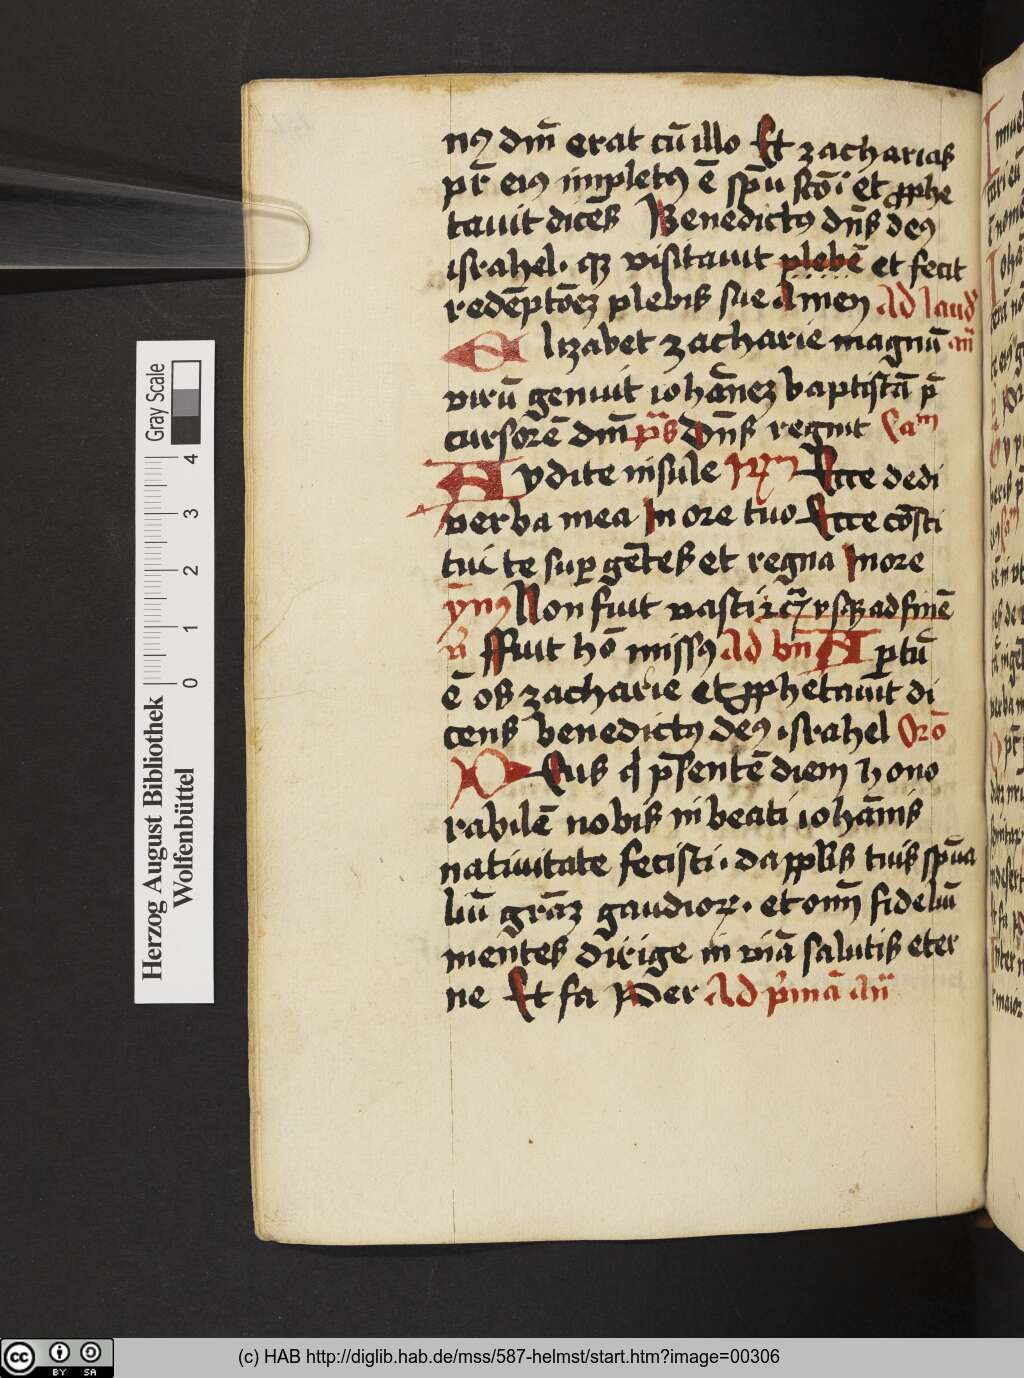 nꝰ dm̄ erat cū illo Et zacharias
pr̄ eiꝰ impletꝰ ē sp̄u sc̄o i et ꝓphe
tauit dicēs Benedictꝰ dn̄s deꝰ
israhel · qꝫ visitauit plebē et fecit
redēptōeꝫ plebis sue Amen Ad laud
Elizabet zacharie magnū an̄
virū genuit iohāneꝫ baptistā p̄
cursorē dm̄ p̄s dn̄s regnit Cam
Avdite insule Ecce dedi
verba mea in ore tuo Ecce cōsti
tui te suꝑ gētes et regna In ore
ym̄ꝰ Non fuit vasti vsqꝫ ad finē
v̄ Ffuit hō missꝰ Ad bn̄ Aꝑtū
ē os zacharie et ꝓphetauit di
cens benedictꝰ deꝰ israhel Orō
Deus q̄ p̄sentē diem hono
rabilē nobis in beati iohānis
natiuitate fecisti · da ꝓplis tuis sp̄ua
liū grāꝫ gaudioꝝ · et om̄ fideliū
mentes dirige in viā salutis eter
ne Et fa Ad p̄mā an̄
Herzog August Bibliothek
Wolfenbüttel
Gray Scale
0 1 2 3 4
CC BY SA
(c) HAB http://diglib.hab.de/mss/587-helmst/start.htm?image=00306